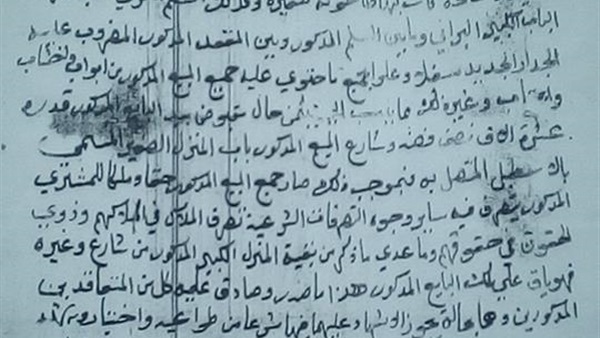 الباب الكبير البراني وما بين السلم المذكور وبين المقعد المذكور المضروب عليه
الجدار الجديد سفله وعلو الجميع ما حتوي عليه جميع المبيع المذكور من ابواب واخشاب
وغيره لك بثمن حال مقبوض بيد البايع المذكور قدره
عشرة الاف نصف فضه وشارع المبيع المذكور باب المنزل الصغير المسمى
المتصل به فبموجب ذلك صار جميع المبيع المذكور حقا وملكا للمشتري
المذكور يتصرف فيه ساير وجوه التصرفات الشرعية تصرف الملاك في املاكهم وذوي
الحقوق في حقوقهم وما عدي ما ذكر من بقية المنزل الكبير المذكور من شارع وغيره
فهو باق علي ملك البايع المذكور هذا ما صدر وصادق عليه كل من المتعاقدين
المذكورين وهما بحالة يجوز الاشهاد عليهما فيها شرعا من طواعيه واختيار وشهد